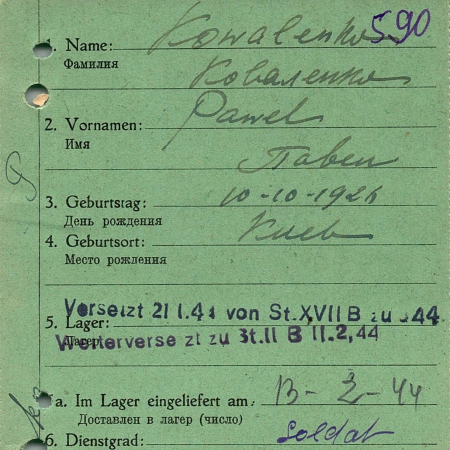 590
1. Name: Kowalenko
Фамилия
Коваленко
2. Vornamen: Pawel
Имя
Павел
3. Geburtstag: 10-10-1924
День рождения
4. Geburtsort: Киев
Место рождения
Versetzt 21 1.44 von St.XVII B zu 44
5. Lager:
Лагерь
Weiterverse zt zu St.II B 11.2,44
a. Im Lager eingeliefert am: 13-2-44
Доставлен в лагер (число)
6. Dienstgrad: Soldat